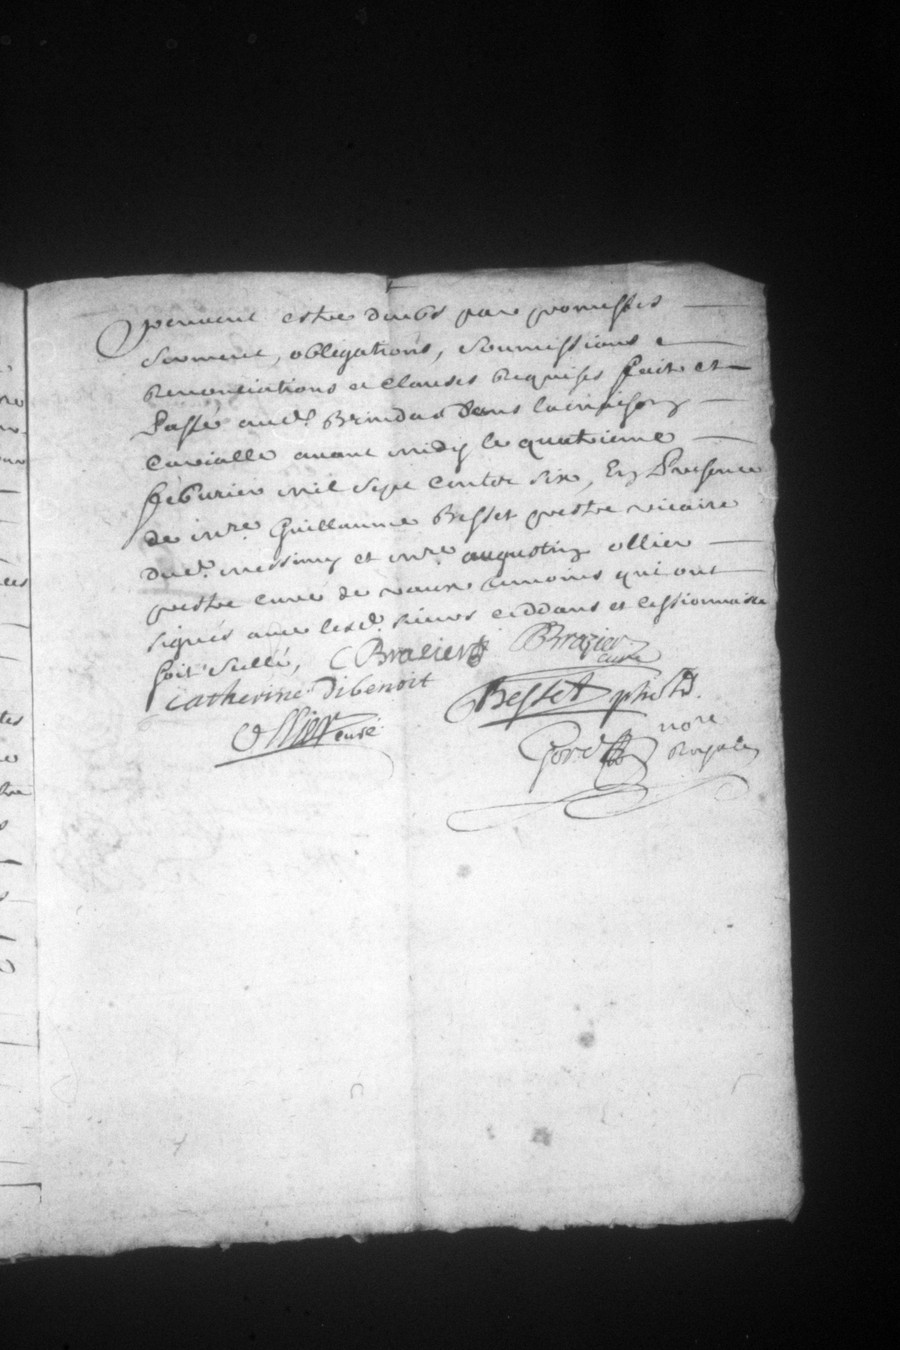 peuvent estre deubs par promesses
serment, obligations, soumissions &
Renonciations et clauses Requises fait et
Passé aud. Brindas dans la maison
Curialle avant midy le quatrieme
feburier mil sept cents six, En Presence
de mre Guillaume Besset prestre vicaire
dud. messimy et mre augustin ollier
prestre curé de vaux temoins qui ont
signés avec lesd. sieurs ceddans et cessionnaire
soit sellé, Brazier Brazier
curé
catherine Dibenoit
Besset
Ollier curé
nore
Royale